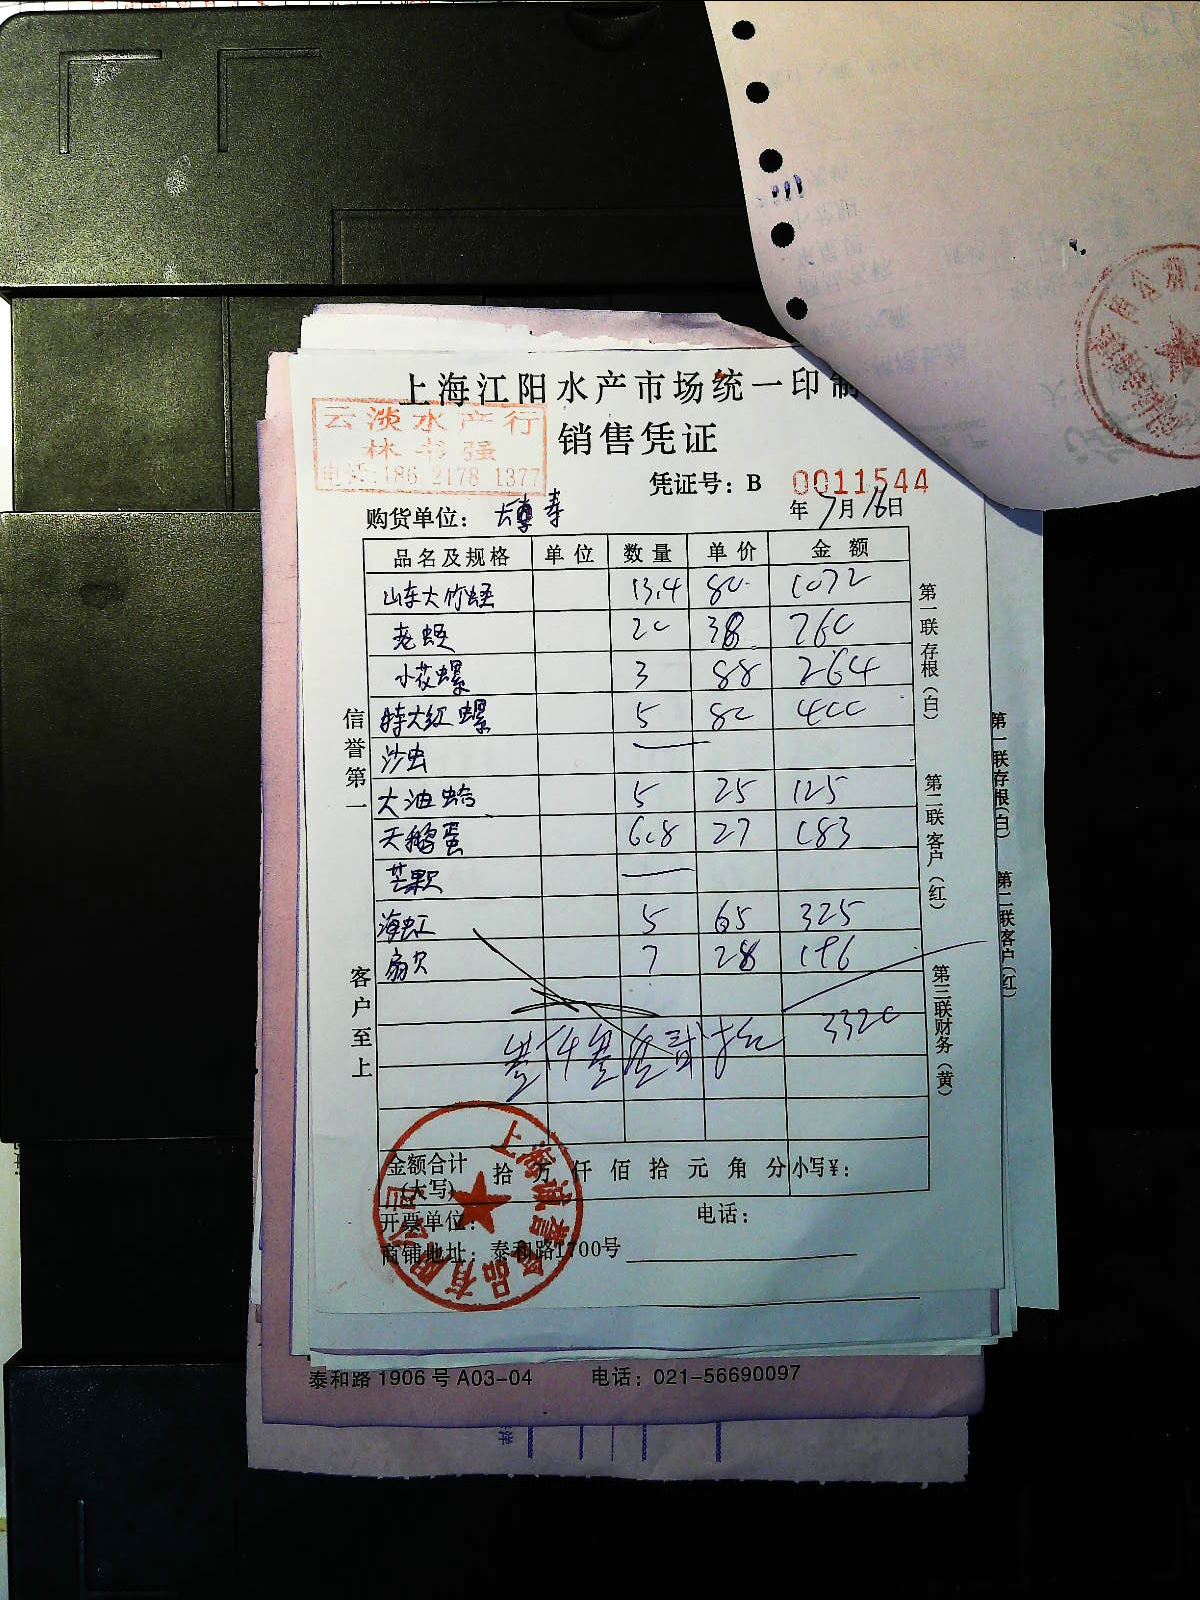 上海江阳水产市场统一印制
云淡水产行
林书强
电话:186 2178 1377
销售凭证
凭证号：B 0011544
购货单位：
年 7月 16日
品名及规格 单位 数量 单价 金额
山东大竹蛏 13.4 80 1072
老蛏 20 38 760
小花螺 3 88 264
特大红螺 5 80 400
沙虫 —
大油蛤 5 25 125
天鹅蛋 6.8 27 183
芒果 —
海虹 5 65 325
扇贝 7 28 196
叁仟叁佰贰拾 3320
金额合计(大写) 拾 万 仟 佰 拾 元 角 分 小写¥：
开票单位： 电话：
商铺地址：泰和路1700号
信誉第一 客户至上
第一联存根(白) 第二联客户(红) 第三联财务(黄)
第一联存根(白) 第二联客户(红)
泰和路 1906 号 A03-04 电话：021-56690097